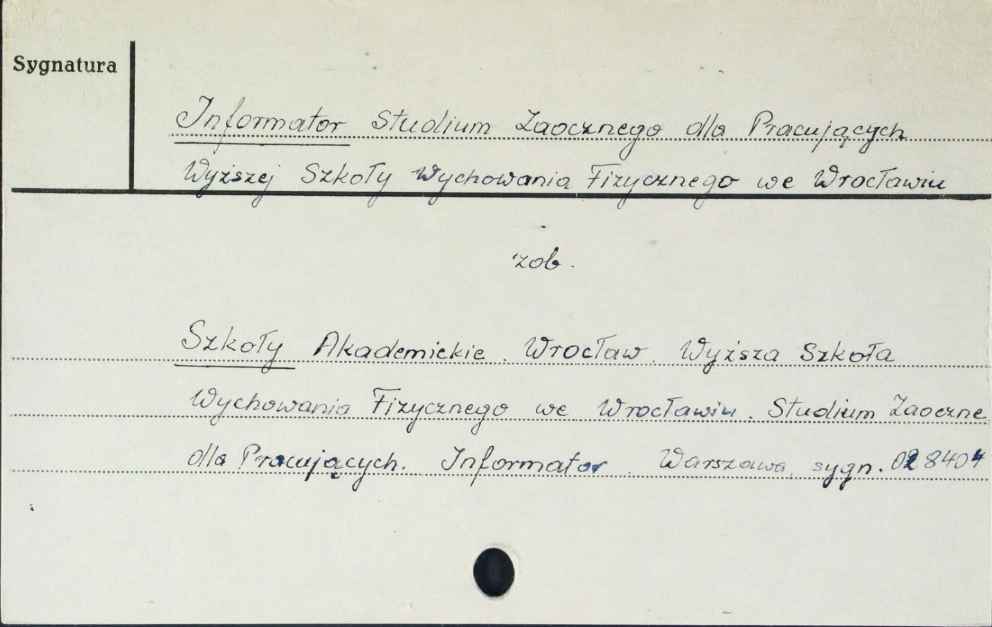 Sygnatura
Informator Studium Zaocznego dla Pracujących
Wyższej Szkoły Wychowania Fizycznego we Wrocławiu
zob.
Szkoły Akademickie. Wrocław. Wyższa Szkoła
Wychowania Fizycznego we Wrocławiu. Studium Zaoczne
dla Pracujących. Informator. Warszawa, sygn. 028404